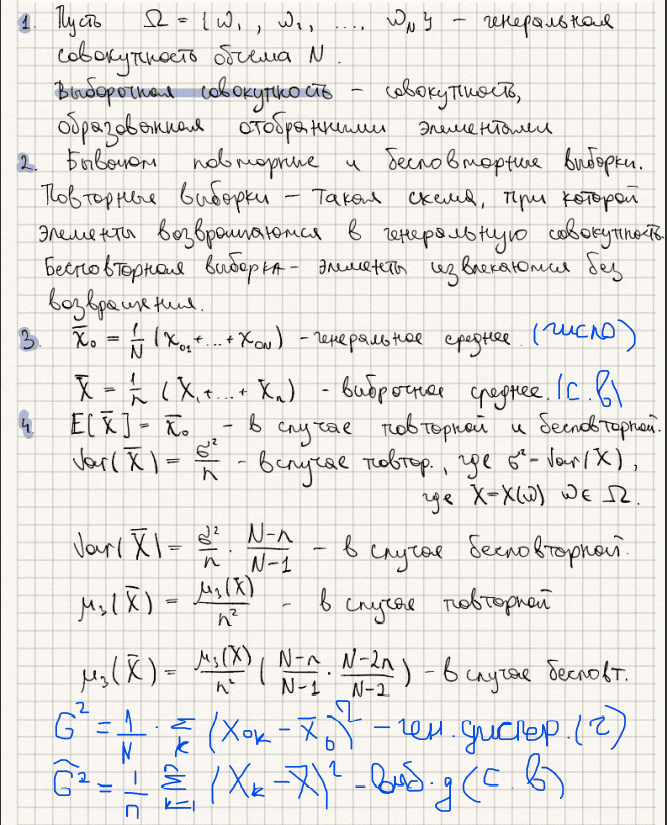 1. Пусть Ω = {ω₁, ω₁, .... ω_N} – генеральная
совокупность объема N.
Выборочная совокупность – совокупность,
образованная отобранными элементами
2. Бывают повторные и бесповторные выборки.
Повторные выборки – такая схема, при которой
элементы возвращаются в генеральную совокупность.
Бесповторная выборка – элементы извлекаются без
возвращения.
3. x̄₀ = 1/N (x₀₁+...+x₀N) – генеральное среднее. (число)
X̄ = 1/n (X₁+...+Xₙ) – выброчное среднее. (с.в)
4. E[X̄] = x̄₀ – в случае повторной и бесповторной.
Var(X̄) = σ²/n – в случае повтор., где σ² – Var(X),
где X = X(ω) ω ∈ Ω.
Var(X̄) = σ²/n · (N-n)/(N-1) – в случае бесповторной.
μ₃(X̄) = μ₃(X)/n² – в случае повторной
μ₃(X̄) = μ₃(X)/n² ( (N-n)/(N-1) · (N-2n)/(N-2) ) – в случае бесповт.
G² = 1/N · Σ_k (X₀k – x̄₀)² – ген. диспер. (г)
Ĝ² = 1/n Σ_{k=1}^n (X_k – X̄)² – выб. д (с.в)